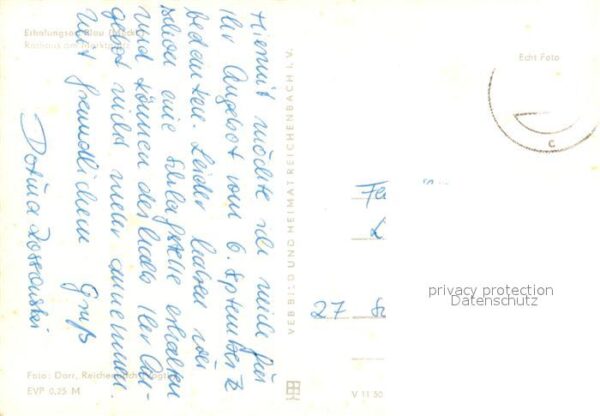 Erholungsort Plau (Meckl.)
Rathaus am Marktplatz
Hiermit möchte ich mich für
Ihr Angebot vom 6. September
bedanken. Leider haben wir
schon eine Schlafstelle erhalten
und können deshalb Ihr An-
gebot nicht mehr annehmen.
Mit freundlichem Gruß
Dorina
Foto: Darr, Reichenbach
EVP 0,25 M
VEB BILD UND HEIMAT REICHENBACH I. V.
V 11 50
Echt Foto
C
27
privacy protection
Datenschutz